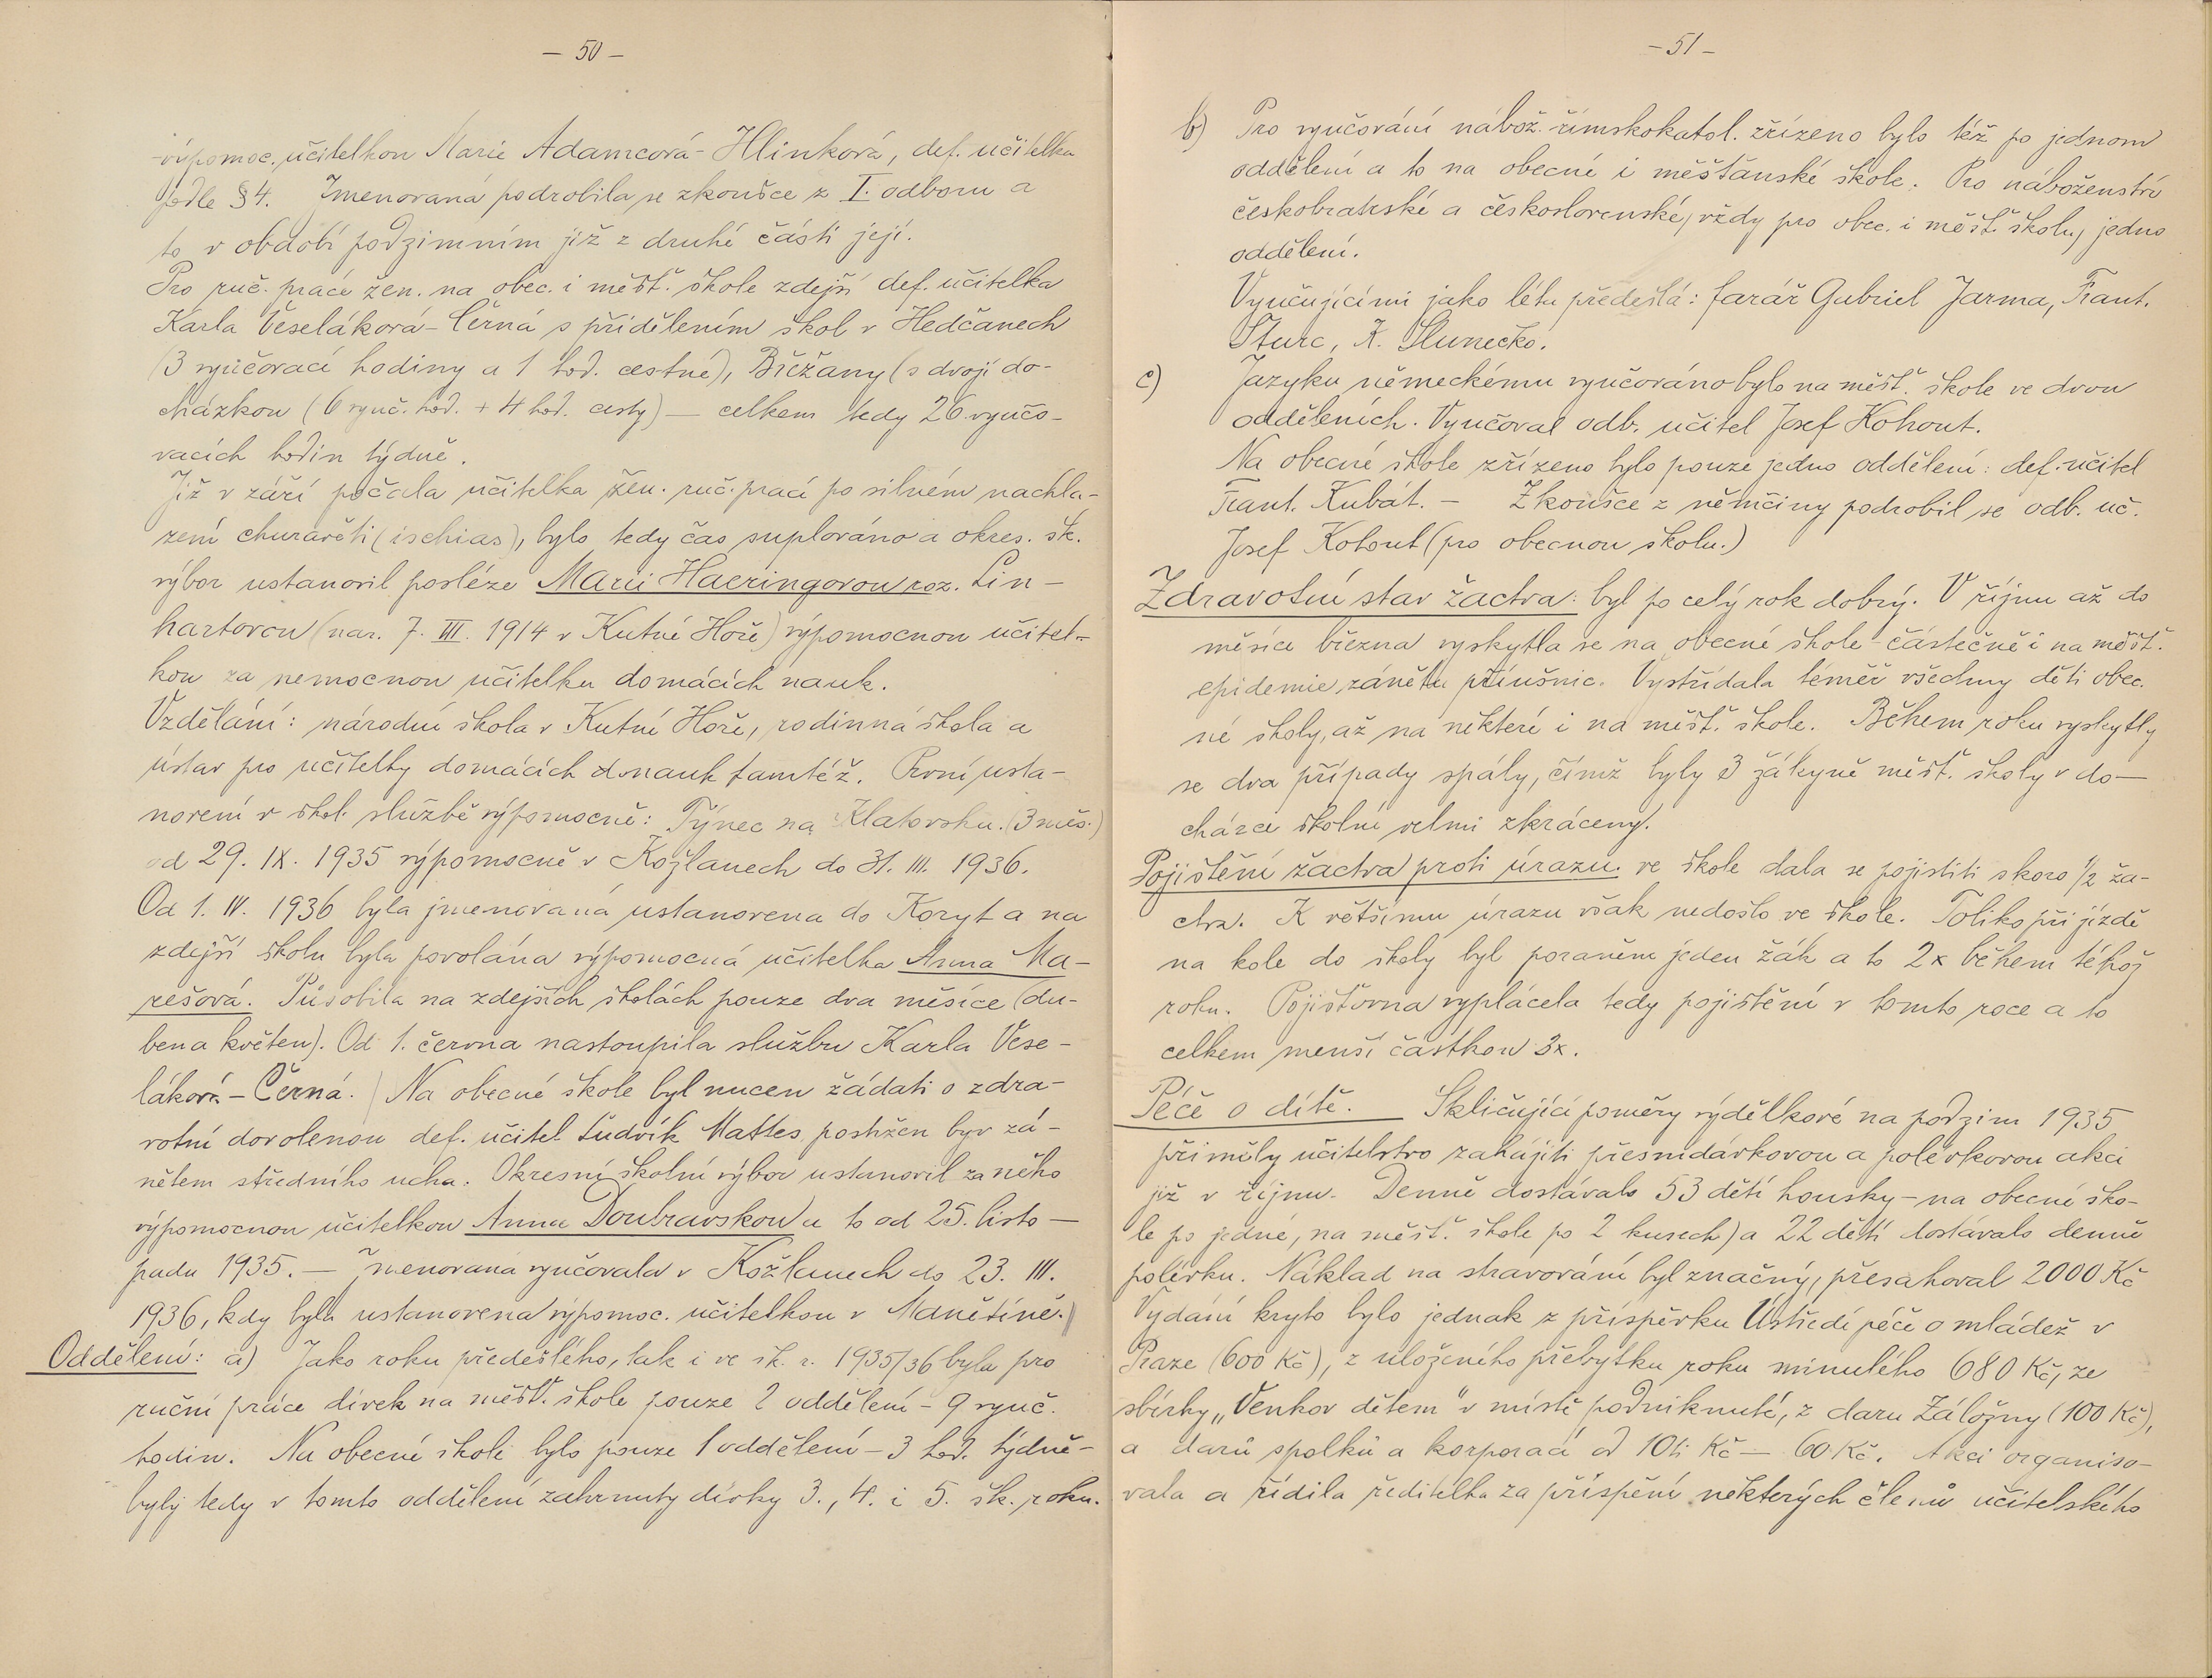 – 50 –
výpomoc. učitelkou Marie Adamcová-Hlinková, def. učitelka
podle § 4. Jmenovaná podrobila se zkoušce z I. odboru a
to v období podzimním již z druhé části její.
Pro ruč. práce žen. na obec. i měšť. škole zdejší def. učitelka
Karla Veseláková-Černá s přidělením škol v Hedčanech
(3 vyučovací hodiny a 1 hod. cestné), Břežany (s dvojí do-
cházkou (6 vyuč. hod. + 4 hod. cesty) – celkem tedy 26 vyučo-
vacích hodin týdně.
Již v září počala učitelka žen. ruč. prací po silném nachla-
zení churavěti (ischias), bylo tedy čas suplováno a okres. šk.
výbor ustanovil posléze Marii Haeringovou roz. Lin-
hartovou (nar. 7. III. 1914 v Kutné Hoře) výpomocnou učitel-
kou za nemocnou učitelku domácích nauk.
Vzdělání: národní škola v Kutné Hoře, rodinná škola a
ústav pro učitelky domácích nauk tamtéž. První usta-
novení v škol. službě výpomocné: Týnec na Klatovsku. (3 měs.)
od 29. IX. 1935 výpomocně v Kožlanech do 31. III. 1936.
Od 1. IV. 1936 byla jmenovaná ustanovena do Koryt a na
zdejší školu byla povolána výpomocná učitelka Anna Ma-
rešová. Působila na zdejších školách pouze dva měsíce (du-
ben a květen). Od 1. června nastoupila službu Karla Vese-
láková-Černá. Na obecné škole byl nucen žádati o zdra-
votní dovolenou def. učitel Ludvík Mattes postižen byv zá-
nětem středního ucha. Okresní školní výbor ustanovil za něho
výpomocnou učitelkou Annu Doubravskou a to od 25. listo-
padu 1935. – Jmenovaná vyučovala v Kožlanech do 23. III.
1936, kdy byla ustanovena výpomoc. učitelkou v Manětíně.
Oddělení: a) Jako roku předešlého, tak i ve šk. r. 1935/36 byla pro
ruční práce dívek na měšť. škole pouze 2 oddělení – 9 vyuč.
hodin. Na obecné škole bylo pouze 1 oddělení – 3 hod. týdně –
byly tedy v tomto oddělení zahrnuty dívky 3., 4. i 5. šk. roku.
– 51 –
b) Pro vyučování nábož. římskokatol. zřízeno bylo též po jednom
oddělení a to na obecné i měšťanské škole. Pro náboženství
českobratrské a československé, vždy pro obec. i měšť. školu, jedno
oddělení.
Vyučujícími jako léta předešlá: farář Gabriel Jarma, Frant.
Šturc, K. Slunečko.
c) Jazyku německému vyučováno bylo na měšť. škole ve dvou
odděleních. Vyučoval odb. učitel Josef Kohout.
Na obecné škole zřízeno bylo pouze jedno oddělení: def. učitel
Frant. Kubát. – Zkoušce z němčiny podrobil se odb. uč.
Josef Kohout (pro obecnou školu.)
Zdravotní stav žactva: byl po celý rok dobrý. V říjnu až do
měsíce března vyskytla se na obecné škole – částečně i na měšť.
epidemie zánětu příušnic. Vystřídala téměř všechny děti obec.
né školy, až na některé i na měšť. škole. Během roku vyskytly
se dva případy spály, čímž byly 3 žákyně měšť. školy v do-
cházce školní velmi zkráceny.
Pojištění žactva proti úrazu. ve škole dala se pojistiti skoro ½ ža-
ctva. K většímu úrazu však nedošlo ve škole. Toliko při jízdě
na kole do školy byl poraněn jeden žák a to 2x během téhož
roku. Pojišťovna vyplácela tedy pojištění v tomto roce a to
celkem menší částkou 3x.
Péče o dítě. Skličující poměry výdělkové na podzim 1935
přiměly učitelstvo zahájiti přesnídávkovou a polévkovou akci
již v říjnu. Denně dostávalo 53 dětí housky – na obecné ško-
le po jedné, na měšť. škole po 2 kusech) a 22 dětí dostávalo denně
polévku. Náklad na stravování byl značný, přesahoval 2000 Kč
Vydání kryto bylo jednak z příspěvku Ústředí péče o mládež v
Praze (600 Kč), z uloženého přebytku roku minulého 680 Kč, ze
sbírky „Venkov dětem" v místě podniknuté, z daru Záložny (100 Kč),
a darů spolků a korporací od 10ti Kč – 60 Kč. Akci organiso-
vala a řídila ředitelka za přispění některých členů učitelského